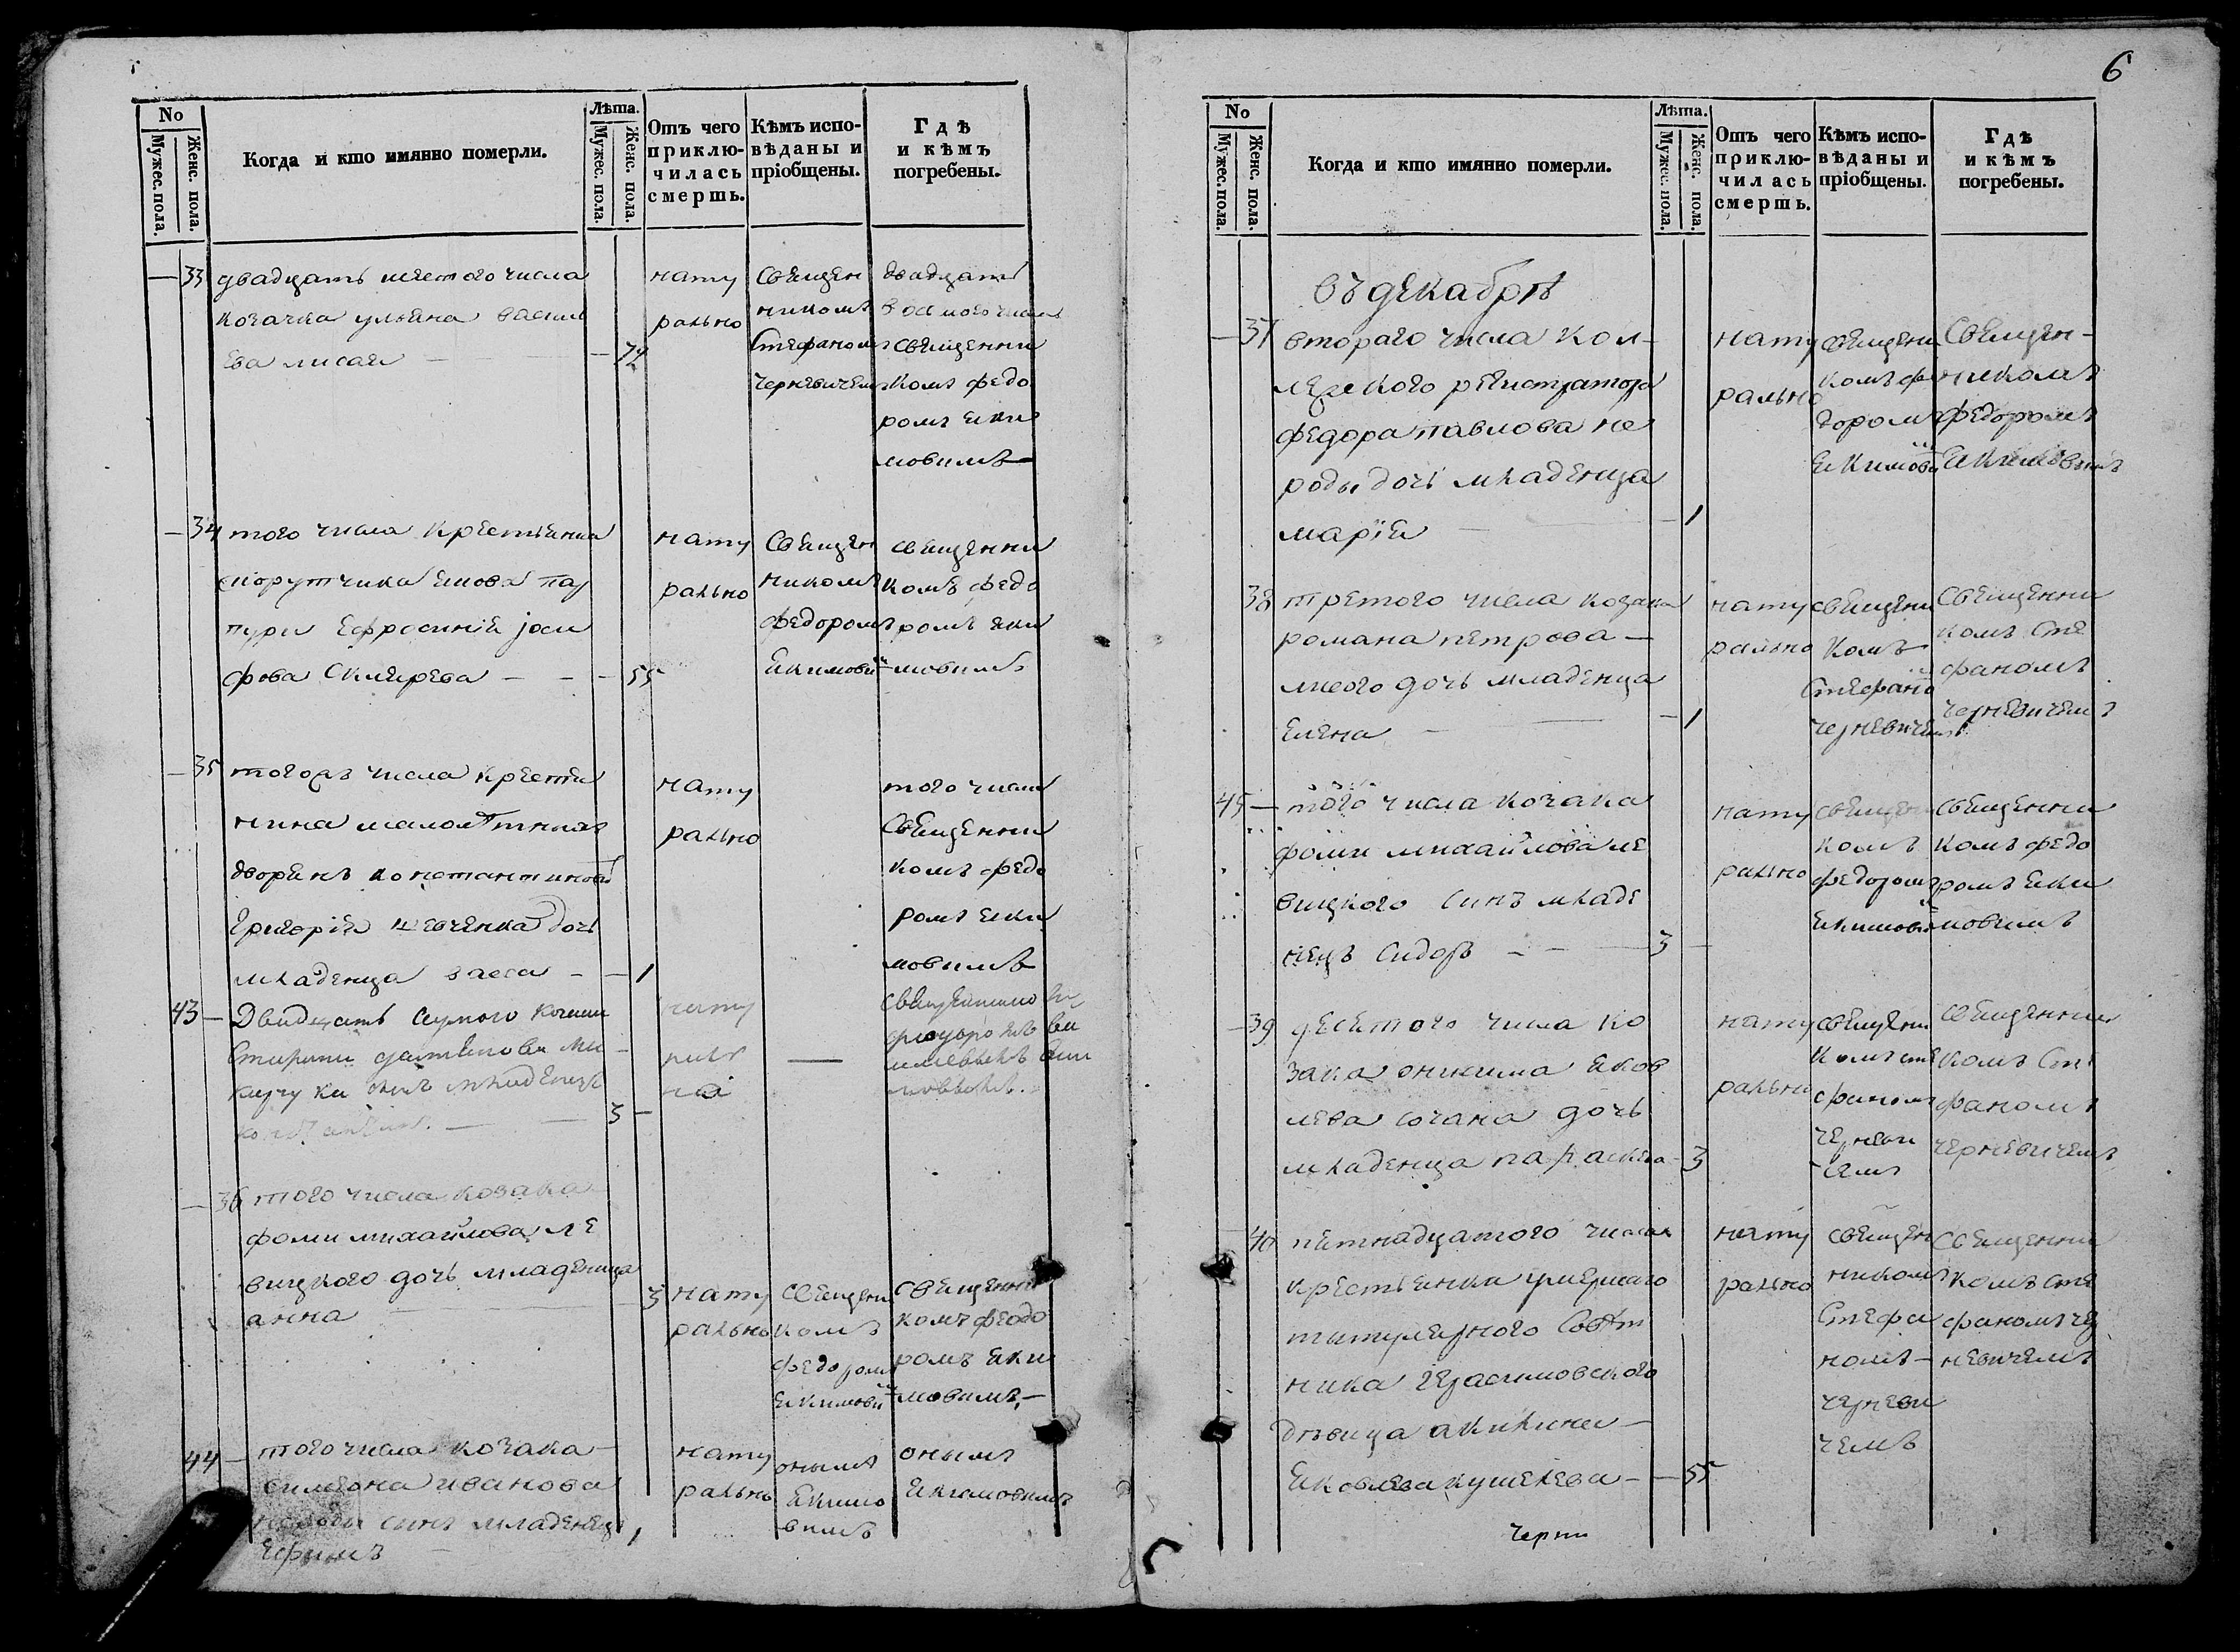 No
Мужес. пола.
Женс. пола.
Когда и кто имянно померли.
Лѣта.
Мужес. пола.
Женс. пола.
Отъ чего приклю-
чилась смерть.
Кѣмъ испо-
вѣданы и
пріобщены.
Гдѣ
и кѣмъ
погребены.
— 33 двадцать шестого числа
козачка ульяна васил
ева лисая — — 72
нату
рально
Священ
никомъ
Стефаномъ
Черневичемъ
двадцать
восмого числа
священни
комъ федо
ромъ яки
мовимъ
— 34 того числа крестянка
порутчика
Ефросинія іоси
фова — — 55
нату
рально
Священ
никомъ
федоромъ
Екимови
священни
комъ федо
ромъ яки
мовимъ
— 35 тогожъ числа крестя
нина малолѣтныхъ
дворянъ константинов
Григорія шевченка дочь
младенца васса — — 1
нату
рально
того числа
Священни
комъ федо
ромъ яки
мовимъ
43 — Двадцать
младенецъ
3 —
нату
— 36 того числа козака
фоми михайлова ле
вицкого дочь младенца
анна — 3
нату
рально
священи
комъ
федоромъ
Екимови
священни
комъ феодо
ромъ яки
мовимъ —
44 — того числа козака
симеона иванова
нероди синъ младенецъ
Ефимъ — 1
нату
рально
онымъ
Екимо
вимъ
онымъ
Екимовимъ
6
No
Мужес. пола.
Женс. пола.
Когда и кто имянно померли.
Лѣта.
Мужес. пола.
Женс. пола.
Отъ чего
приклю-
чилась
смерть.
Кѣмъ испо-
вѣданы и
пріобщены.
Гдѣ
и кѣмъ
погребены.
въ декабрѣ
— 37 второго числа кол-
лежского регистратора
федора павлова не
роды дочь младенца
марія — — 1
нату
рально
священи
комъ фе
доромъ
Екимови
Священ-
никомъ
федоромъ
Екимовимъ
38 третого числа козака
романа петрова —
лисого дочь младенца
Елена — — 1
нату
рально
священи
комъ
Стефано
Черневичем
Священни
комъ Сте
фаномъ
Черневичемъ
45 — того числа козака
фоми михайлова ле
вицкого синъ младе
нецъ Сидоръ — — 3 —
нату
рально
священи
комъ
федоромъ
Екимови
Священни
комъ федо
ромъ яки
мовимъ
— 39 десятого числа ко
зака онисима яков
лева дочь
младенца параскева — 3
нату
рально
священи
комъ сте
фаномъ
Черневи
чемъ
священни
комъ Сте
фаномъ
Черневичемъ
40 пятнадцатого числа
крестьянка умершаго
титулярного Совѣт
ника Герасимовского
дѣвица акилина —
Яковлева кушелева — — 55
нату
рально
священ
никомъ
Стефа
номъ —
Черневи
чемъ
Священни
комъ сте
фаномъ чер
невичемъ